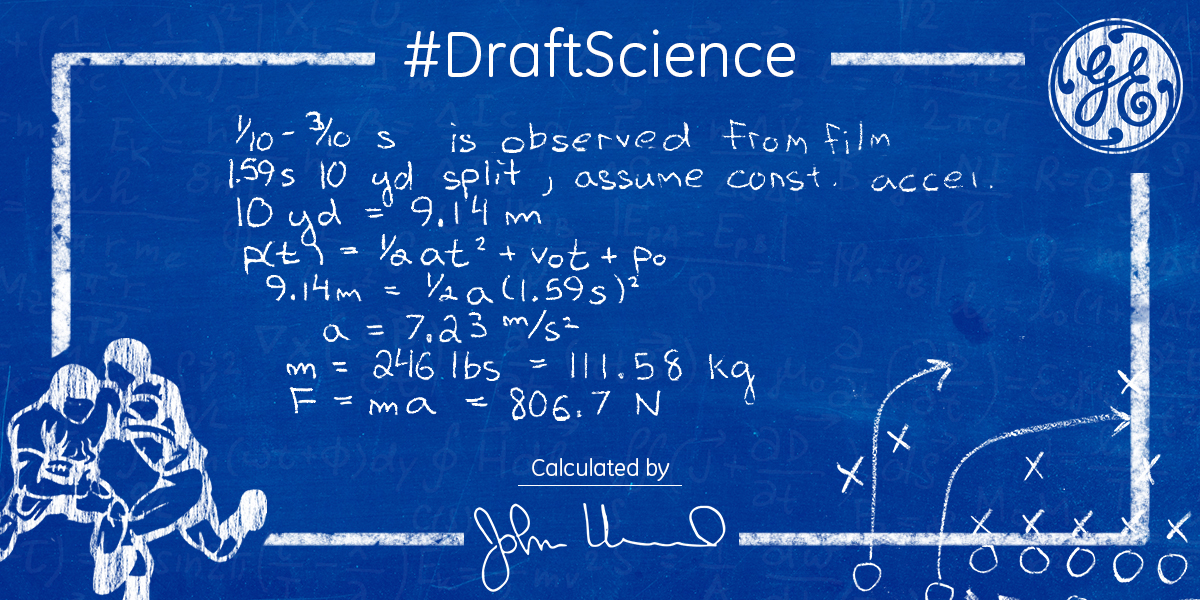 #DraftScience
GE
1/10 - 3/10 s is observed from film
1.59s 10 yd split, assume const. accel.
10 yd = 9.14 m
p(t) = 1/2 at² + v₀t + p₀
9.14m = 1/2 a(1.59s)²
a = 7.23 m/s²
m = 246 lbs = 111.58 kg
F = ma = 806.7 N
Calculated by
John